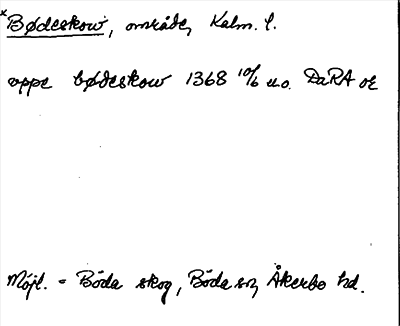 *Bødeskow, område, Kalm. l.
oppe bødeskow 1368 10/6 u.o. DaRA or
Möjl. = Böda skog, Böda sn, Åkerbo hd.